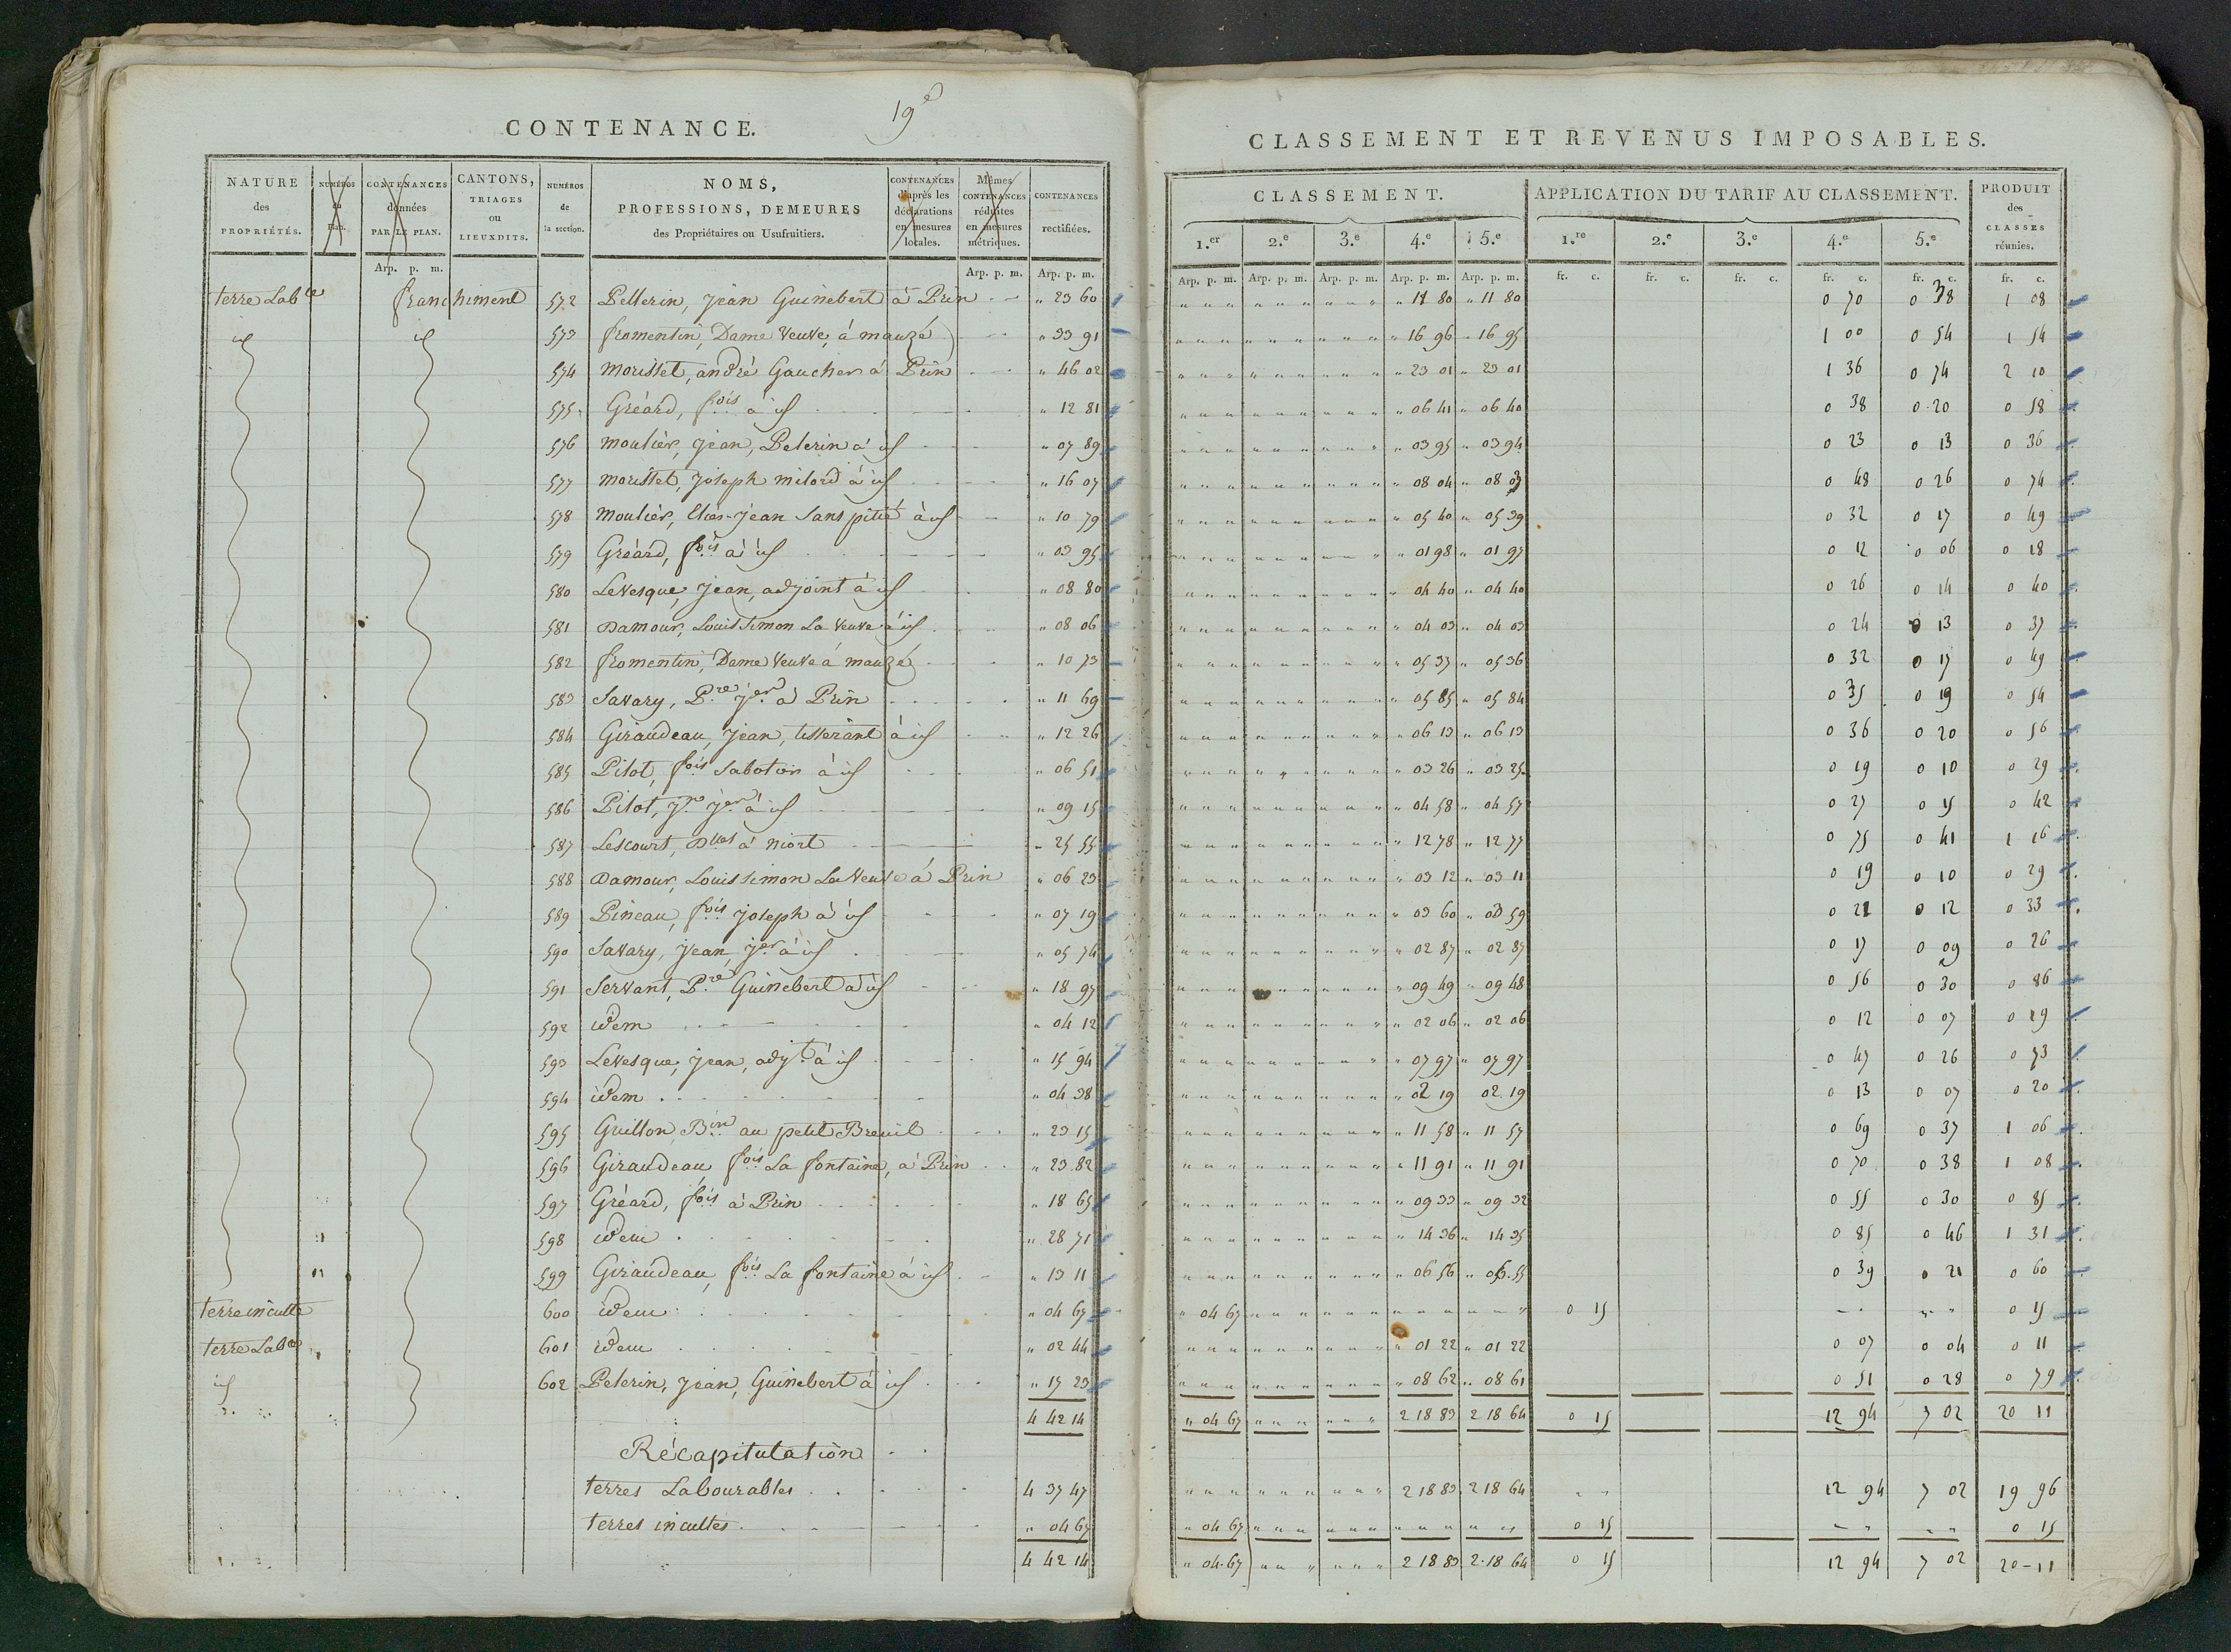 19e
CONTENANCE.
NATURE des PROPRIÉTÉS. NUMÉROS du Plan. CONTENANCES données PAR LE PLAN. CANTONS, TRIAGES OU LIEUXDITS. NUMÉROS de la section. NOMS, PROFESSIONS, DEMEURES des Propriétaires ou Usufruitiers. CONTENANCES d'après les déclarations en mesures locales. Mêmes CONTENANCES réduites en mesures métriques. CONTENANCES rectifiées.
Arp. p. m. Arp. p. m. Arp. p. m.
terre Lable franchiment 572 Pellerin, Jean Guinebert à Prin " 23 60
id id 573 fromentin, Dame Veuve, à mauzé " 33 91
574 morisset, andré Gaucher à Prin " 46 02
575 Gréard, fois à id " 12 81
576 moulièr, jean, Pelerin à id " 07 89
577 morisset, joseph milord à id " 16 07
578 moulièr, Elier-jean Sans pitié à id " 10 79
579 Gréard, fois à id " 03 95
580 Levesque, jean, adjoint à id " 08 80
581 Damour, Louis simon La Veuve à id " 08 06
582 fromentin, Dame Veuve à mauzé " 10 73
583 Savary, Pre jer à Prin " 11 69
584 Giraudeau, jean, tisserant à id " 12 26
585 Pilot, fois Sabotier à id " 06 51
586 Pilot, jer à id " 09 15
587 Lescourt, Dlles à niort " 25 55
588 Damour, Louis simon La Veuve à Prin " 06 23
589 Pineau, fois joseph à id " 07 19
590 Savary, jean, jer à id " 05 74
591 Servant, Pre Guinebert à id " 18 97
592 idem " 04 12
593 Levesque, jean, adjt à id " 15 94
594 idem " 04 38
595 Guillon, Bin au petit Breuil " 23 15
596 Giraudeau, fois La fontaine, à Prin " 23 82
597 Gréard, fois à Prin " 18 65
598 idem " 28 71
599 Giraudeau, fois La fontaine à id " 13 11
terre inculte 600 idem " 04 67
terre Lable 601 idem " 02 44
id 602 Pelerin, jean, Guinebert à id " 17 23
4 42 14
Récapitulation
terres Labourables 4 37 47
terres incultes " 04 67
4 42 14
CLASSEMENT ET REVENUS IMPOSABLES.
CLASSEMENT. APPLICATION DU TARIF AU CLASSEMENT. PRODUIT des CLASSES réunies.
1.er 2.e 3.e 4.e 5.e 1.re 2.e 3.e 4.e 5.e
Arp. p. m. Arp. p. m. Arp. p. m. Arp. p. m. Arp. p. m. fr. c. fr. c. fr. c. fr. c. fr. c. fr. c.
" 11 80 " 11 80 0 70 0 38 1 08
" 16 96 " 16 95 1 00 0 54 1 54
" 23 01 " 23 01 1 36 0 74 2 10
" 06 41 " 06 40 0 38 0 20 0 58
" 03 95 " 03 94 0 23 0 13 0 36
" 08 04 " 08 03 0 48 0 26 0 74
" 05 40 " 05 39 0 32 0 17 0 49
" 01 98 " 01 97 0 12 0 06 0 18
" 04 40 " 04 40 0 26 0 14 0 40
" 04 03 " 04 03 0 24 0 13 0 37
" 05 37 " 05 36 0 32 0 17 0 49
" 05 85 " 05 84 0 35 0 19 0 54
" 06 13 " 06 13 0 36 0 20 0 56
" 03 26 " 03 25 0 19 0 10 0 29
" 04 58 " 04 57 0 27 0 15 0 42
" 12 78 " 12 77 0 75 0 41 1 16
" 03 12 " 03 11 0 19 0 10 0 29
" 03 60 " 03 59 0 21 0 12 0 33
" 02 87 " 02 87 0 17 0 09 0 26
" 09 49 " 09 48 0 56 0 30 0 86
" 02 06 " 02 06 0 12 0 07 0 19
" 07 97 " 07 97 0 47 0 26 0 73
" 02 19 02 19 0 13 0 07 0 20
" 11 58 " 11 57 0 69 0 37 1 06
" 11 91 " 11 91 0 70 0 38 1 08
" 09 33 " 09 32 0 55 0 30 0 85
" 14 36 " 14 35 0 85 0 46 1 31
" 06 56 " 06 55 0 39 0 21 0 60
" 04 67 0 15 0 15
" 01 22 " 01 22 0 07 0 04 0 11
" 08 62 " 08 61 0 51 0 28 0 79
" 04 67 2 18 83 2 18 64 0 15 12 94 7 02 20 11
2 18 83 2 18 64 12 94 7 02 19 96
" 04 67 0 15 0 15
" 04 67 2 18 83 2 18 64 0 15 12 94 7 02 20-11